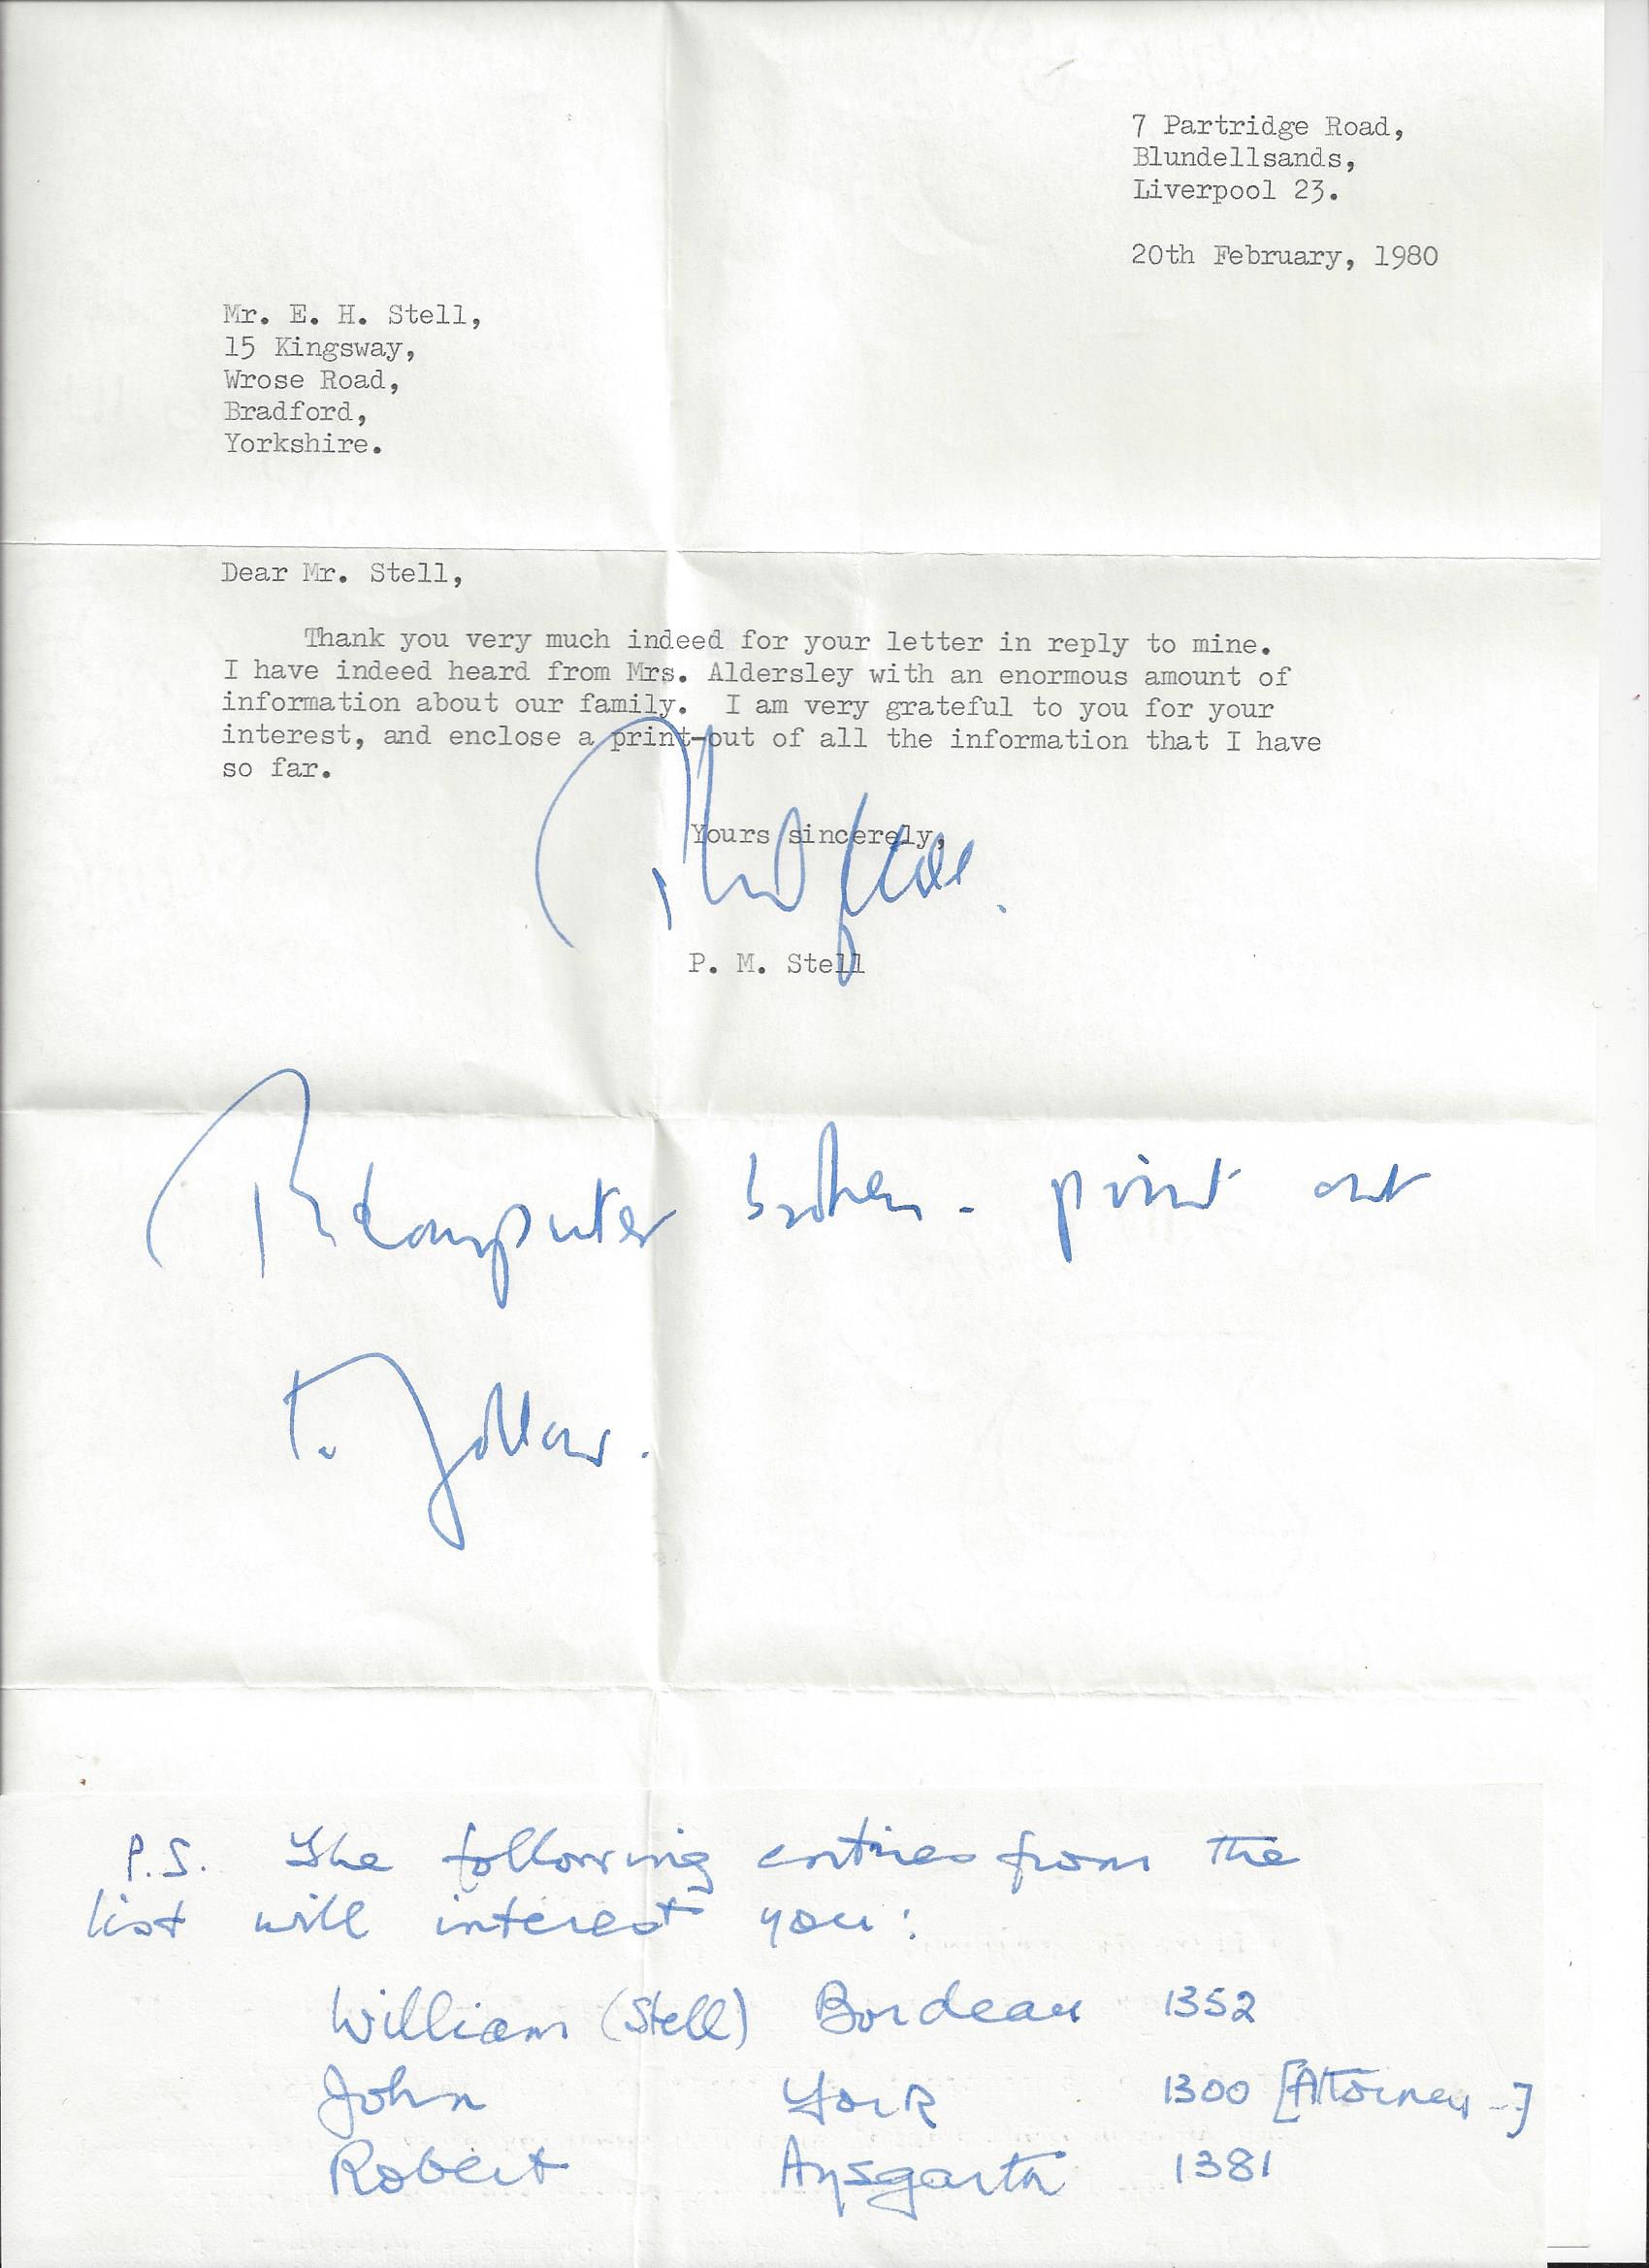 7 Partridge Road,
Blundellsands,
Liverpool 23.
20th February, 1980
Mr. E. H. Stell,
15 Kingsway,
Wrose Road,
Bradford,
Yorkshire.
Dear Mr. Stell,
Thank you very much indeed for your letter in reply to mine.
I have indeed heard from Mrs. Aldersley with an enormous amount of
information about our family. I am very grateful to you for your
interest, and enclose a print-out of all the information that I have
so far.
Yours sincerely,
P. M. Stell
Computer broken - print out
to follow.
P.S. The following entries from the
list will interest you:
William (Stell) Bordeau 1352
John York 1300 [Attorney -]
Robert Aysgarth 1381